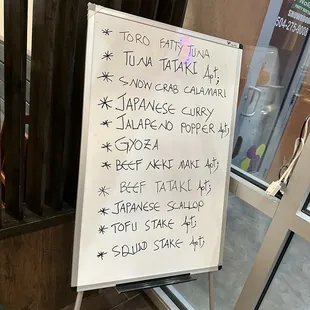 * TORO FATTY TUNA
* TUNA TATAKI Apt;
* SNOW CRAB CALAMARI
* JAPANESE CURRY
* JALAPENO POPPER Apt;
* GYOZA
* BEEF NEKI MAKI Apt;
* BEEF TATAKI Apt;
* JAPANESE SCALLOP
* TOFU STAKE Apt;
* SQUID STAKE Apt;
504-275-9008